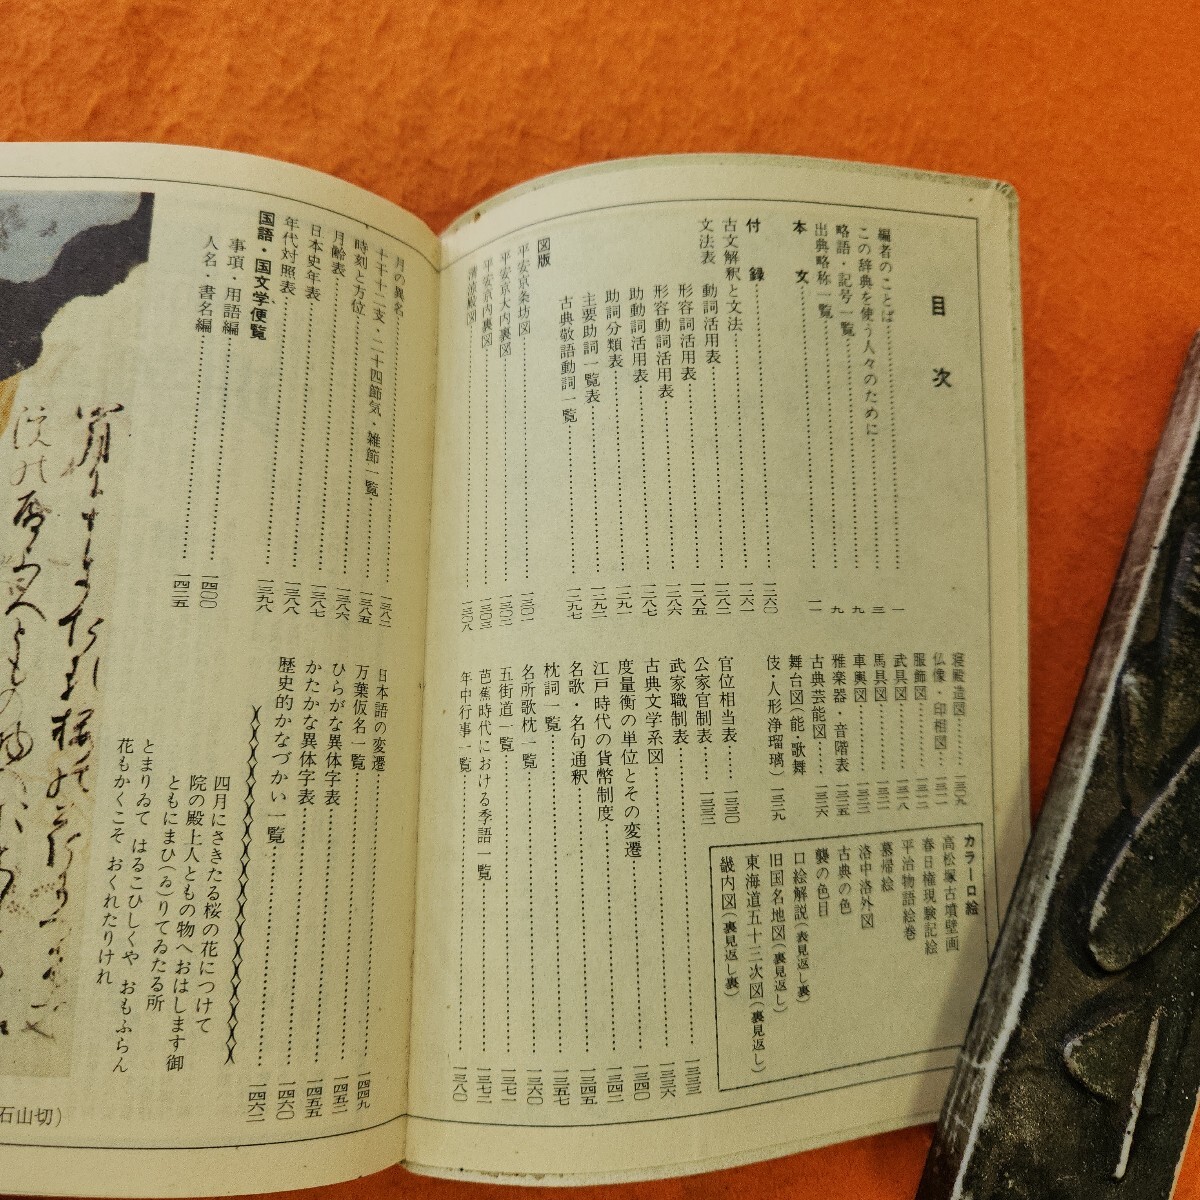 目次
編者のことば……一
この辞典を使う人々のために……三
略語・記号一覧……九
出典略称一覧……九
本文……一一
付録……一二六〇
古文解釈と文法……一二六一
文法表 動詞活用表……一二八二
形容詞活用表……一二八五
形容動詞活用表……一二八六
助動詞活用表……一二八七
助詞分類表……一二九一
主要助詞一覧表……一二九二
古典敬語動詞一覧……一二九七
図版
平安京条坊図……一三〇一
平安京大内裏図……一三〇二
平安京内裏図……一三〇三
清涼殿図……一三〇八
寝殿造図……一三〇九
仏像・印相図……一三一一
服飾図……一三一二
武具図……一三一八
馬具図……一三二一
車輿図……一三二二
雅楽器・音階表……一三二五
古典芸能図……一三二六
舞台図(能・歌舞
伎・人形浄瑠璃)一三二九
官位相当表……一三三〇
公家官制表……一三三二
武家職制表……一三三三
古典文学系図……一三三六
度量衡の単位とその変遷……一三四〇
江戸時代の貨幣制度……一三四二
名歌・名句通釈……一三四五
枕詞一覧……一三五七
名所歌枕一覧……一三六〇
五街道一覧……一三七一
芭蕉時代における季語一覧……一三七二
年中行事一覧……一三八〇
カラー口絵
高松塚古墳壁画
春日権現験記絵
平治物語絵巻
慕帰絵
洛中洛外図
古典の色
襲の色目
口絵解説(表見返し裏)
旧国名地図(裏見返し)
東海道五十三次図(裏見返し)
畿内図(裏見返し裏)
月の異名……一三八二
十干十二支・二十四節気・雑節一覧
時刻と方位……一三八五
月齢表……一三八六
日本史年表……一三八七
年代対照表……一三八八
国語・国文学便覧……一三九八
事項・用語編……一四〇〇
人名・書名編……一四二五
日本語の変遷……一四四九
万葉仮名一覧……一四五二
ひらがな異体字表……一四五五
かたかな異体字表……一四六〇
歴史的かなづかい一覧……一四六二
四月にさきたる桜の花につけて
院の殿上人ともの物へおはします御
ともにまひ(ゐ)りてゐたる所
とまりゐて はるこひしくや おもふらん
花もかくこそ おくれたりけれ
石山切)